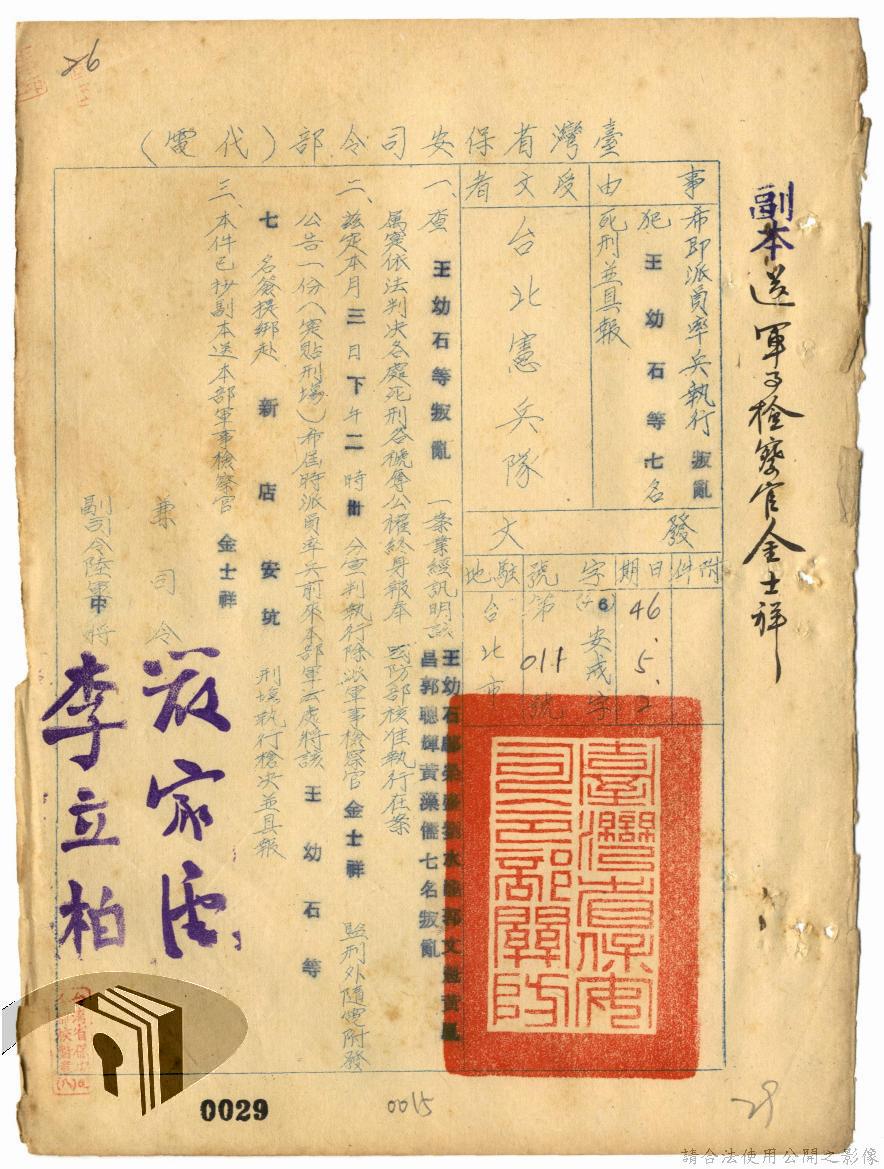 26
副本送軍事檢察官金士祥
臺灣省保安司令部（代電）
事由
希即派員率兵執行叛亂
犯王幼石等七名
死刑並具報
受文者
台北憲兵隊
發文
附件
日期
46.5.2
字號
(46)安戒字
第011號
駐地
台北市
一、查王幼石等叛亂一案業經訊明該王幼石鄺榮
昌郭聰輝黃藻儒七名叛亂
屬實依法判決各處死刑各褫奪公權終身報奉 國防部核准執行在案
二、茲定本月三日下午二時卅分宣判執行除派軍事檢察官金士祥監刑外隨電附發
公告一份（實貼刑場）希屆時派員率兵前來本部軍法處將該王幼石等
七名簽提綁赴新店安坑刑場執行槍決並具報
三、本件已抄副本送本部軍事檢察官金士祥
兼司令
副司令陸軍中將
李立柏
臺灣省保安司令部關防
0029
0015
29
請合法使用公開之影像